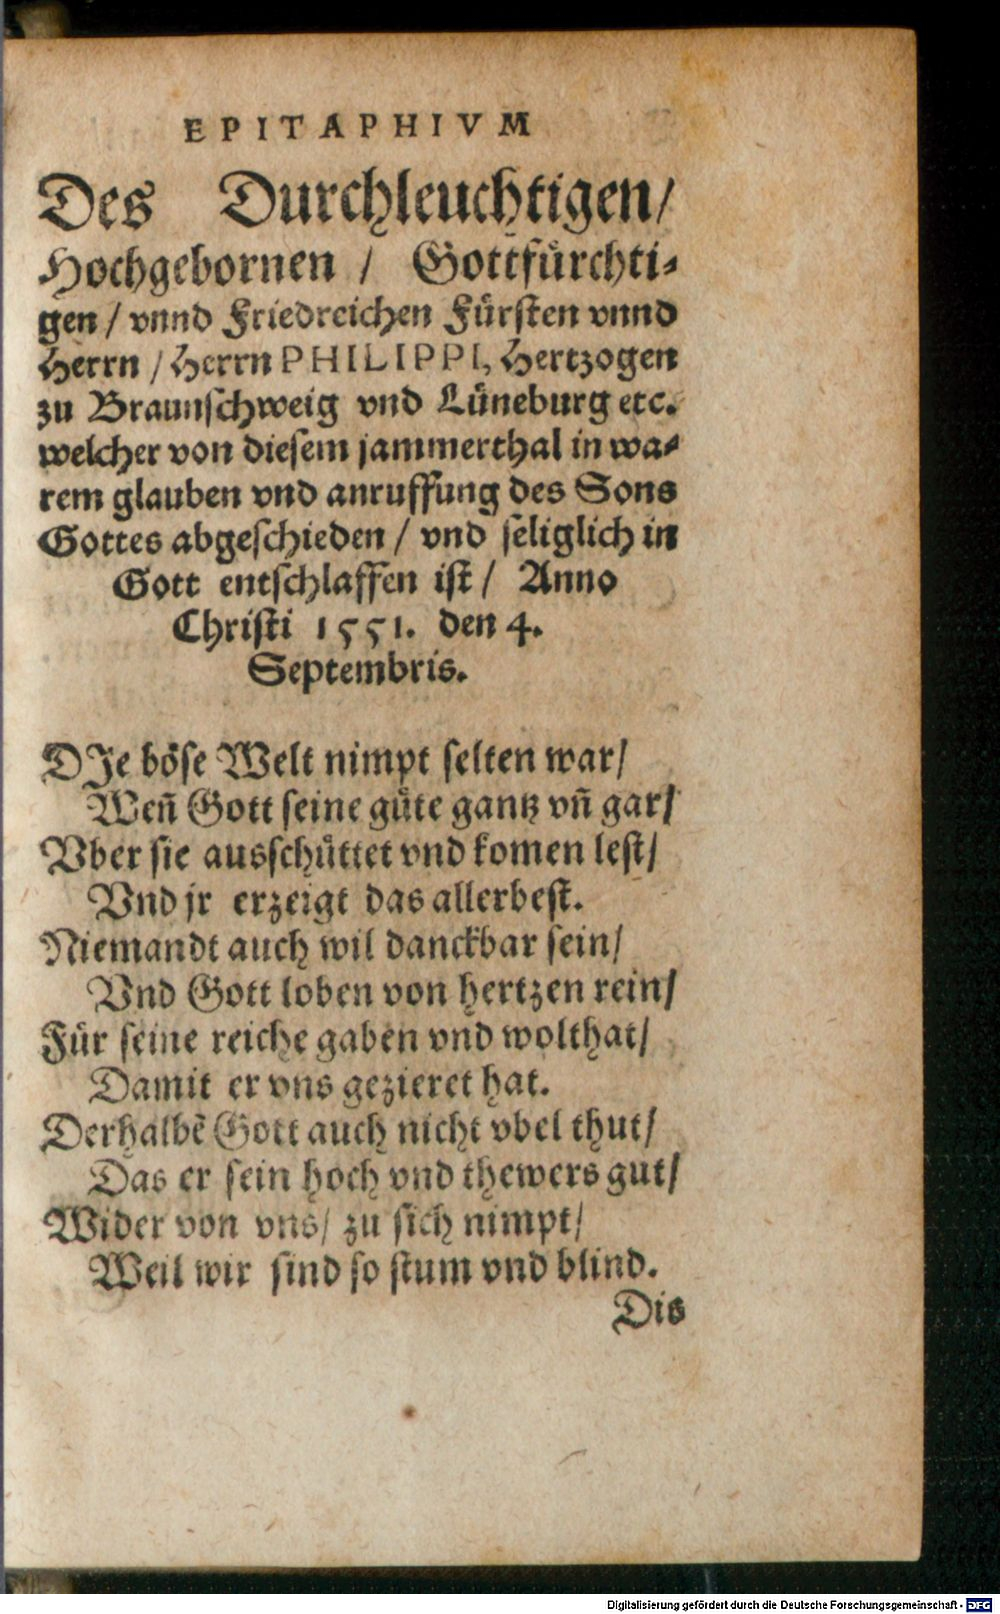 EPITAPHIVM
Des Durchleuchtigen/
Hochgebornen / Gottfürchti⸗
gen / vnnd Friedreichen Fürsten vnnd
Herrn / Herrn PHILIPPI, Hertzogen
zu Braunschweig vnd Lüneburg etc.
welcher von diesem jammerthal in wa⸗
rem glauben vnd anruffung des Sons
Gottes abgeschieden / vnd seliglich in
Gott entschlaffen ist / Anno
Christi 1551. den 4.
Septembris.
DJe böse Welt nimpt selten war/
Weñ Gott seine güte gantz vñ gar/
Vber sie ausschüttet vnd komen lest/
Vnd jr erzeigt das allerbest.
Niemandt auch wil danckbar sein/
Vnd Gott loben von hertzen rein/
Für seine reiche gaben vnd wolthat/
Damit er vns gezieret hat.
Derhalbẽ Gott auch nicht vbel thut/
Das er sein hoch vnd thewers gut/
Wider von vns/ zu sich nimpt/
Weil wir sind so stum vnd blind.
Dis
Digitalisierung gefördert durch die Deutsche Forschungsgemeinschaft - DFG